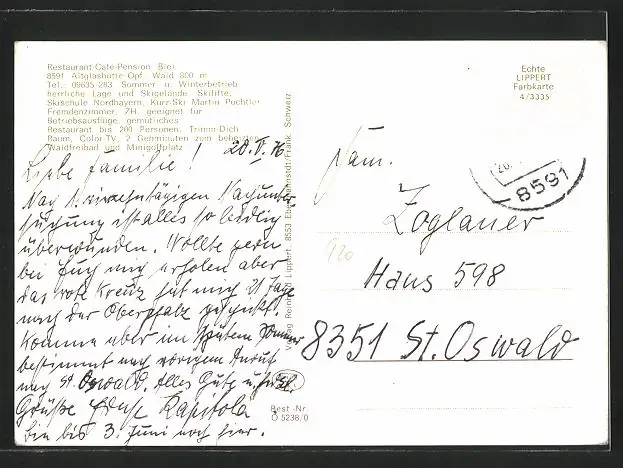 Restaurant-Cafe-Pension Blei
8591 Altglashütte Opf. Wald 800 m
Tel.: 09635-283 Sommer- u. Winterbetrieb
herrliche Lage und Skigelände. Skilifte,
Skischule Nordbayern, Kurz-Ski Martin Puchtler
Fremdenzimmer, ZH, geeignet für
Betriebsausflüge, gemütliches
Restaurant bis 200 Personen, Trimm-Dich-
Raum, Color-TV, 2 Gehminuten zum beheizten
Waldfreibad und Minigolfplatz
Echte
LIPPERT
Farbkarte
4/3335
20. V. 76
Liebe Familie!
Nach 1. vierzehntägigen Nachunter
suchung ist alles so leidlich
überwunden. Wollte gern
bei Euch mich erholen aber
das rote Kreuz hat mich 21 Tage
nach der Oberpfalz geschickt.
Komme aber im Spätem Sommer
bestimmt nach vorigem Anruf
nach St. Oswald. Alles Gute u. herzl.
Grüße Kapitola
bin bis 3. Juni noch hier.
Verlag Reinhold Lippert, 8553 Ebermannstdt/Fränk. Schweiz
Best.-Nr.
O 5238/0
8591
Fam.
Zoglauer
Haus 598
8351 St. Oswald